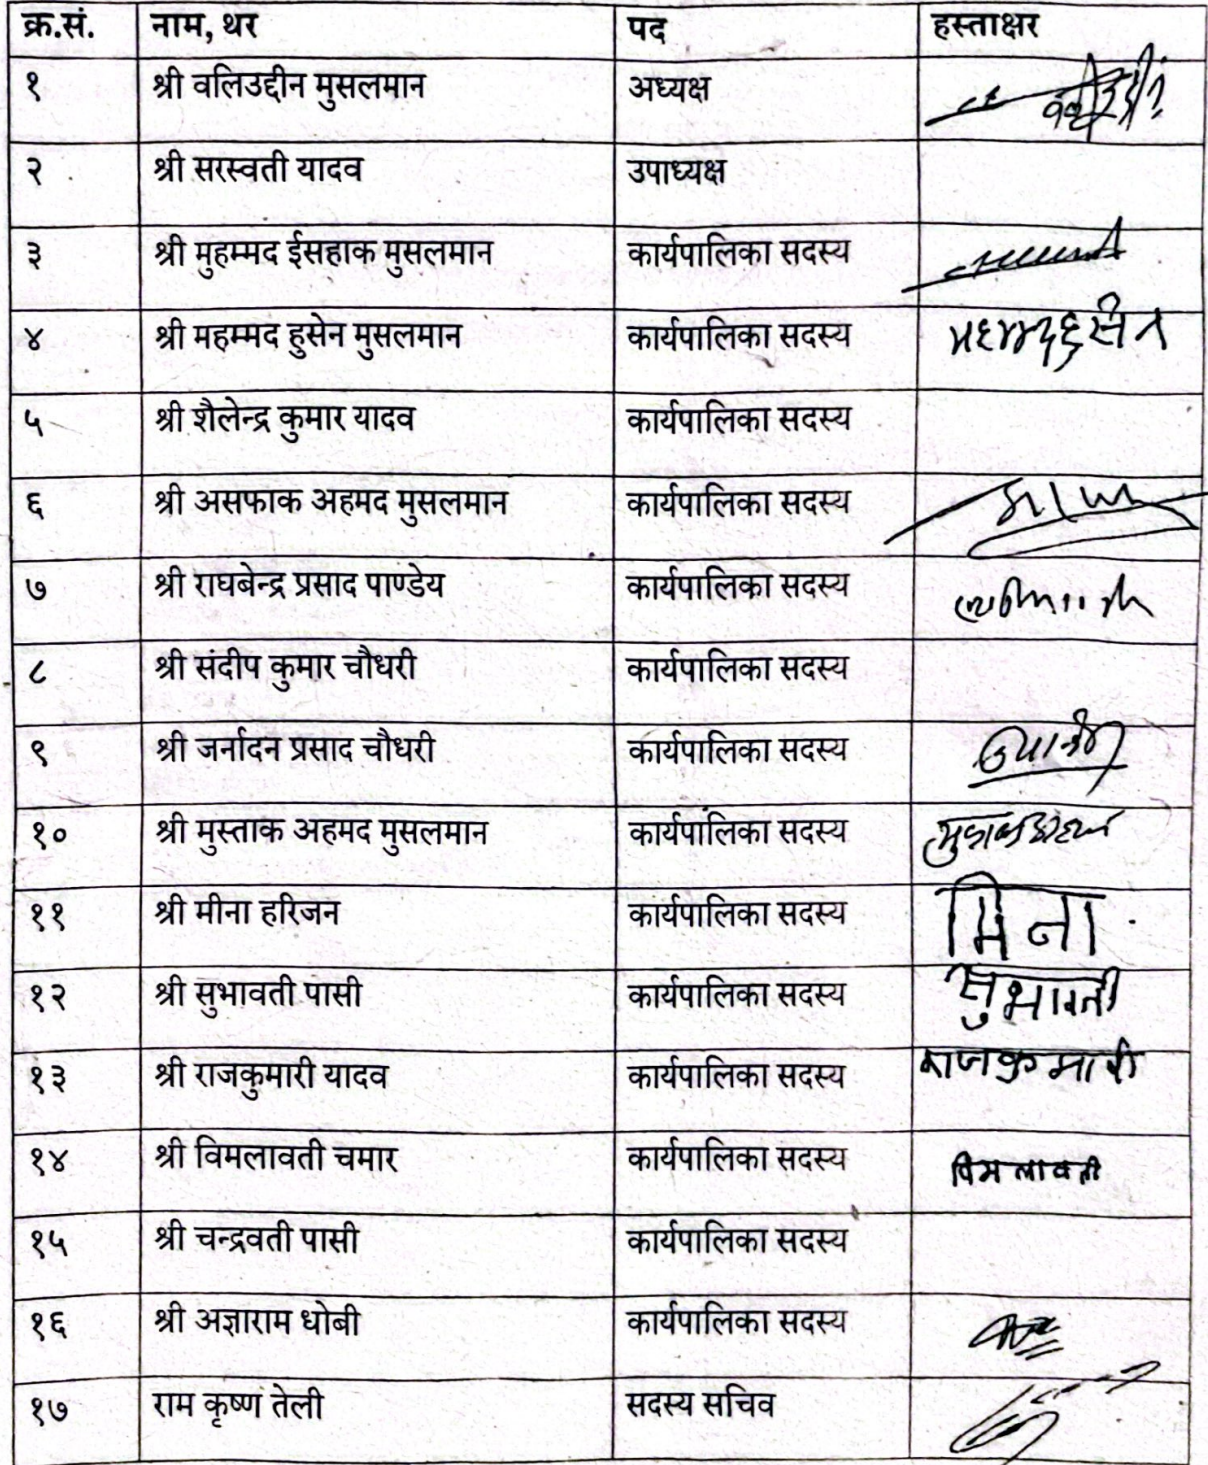 क्र.सं. नाम, थर पद हस्ताक्षर
१ श्री वलिउद्दीन मुसलमान अध्यक्ष
२ श्री सरस्वती यादव उपाध्यक्ष
३ श्री मुहम्मद ईसहाक मुसलमान कार्यपालिका सदस्य
४ श्री महम्मद हुसेन मुसलमान कार्यपालिका सदस्य महमदहुसेन
५ श्री शैलेन्द्र कुमार यादव कार्यपालिका सदस्य
६ श्री असफाक अहमद मुसलमान कार्यपालिका सदस्य
७ श्री राघबेन्द्र प्रसाद पाण्डेय कार्यपालिका सदस्य
८ श्री संदीप कुमार चौधरी कार्यपालिका सदस्य
९ श्री जर्नादन प्रसाद चौधरी कार्यपालिका सदस्य
१० श्री मुस्ताक अहमद मुसलमान कार्यपालिका सदस्य
११ श्री मीना हरिजन कार्यपालिका सदस्य मिना
१२ श्री सुभावती पासी कार्यपालिका सदस्य सुभावती
१३ श्री राजकुमारी यादव कार्यपालिका सदस्य राजकुमारी
१४ श्री विमलावती चमार कार्यपालिका सदस्य विमलावती
१५ श्री चन्द्रवती पासी कार्यपालिका सदस्य
१६ श्री अज्ञाराम धोबी कार्यपालिका सदस्य
१७ राम कृष्ण तेली सदस्य सचिव